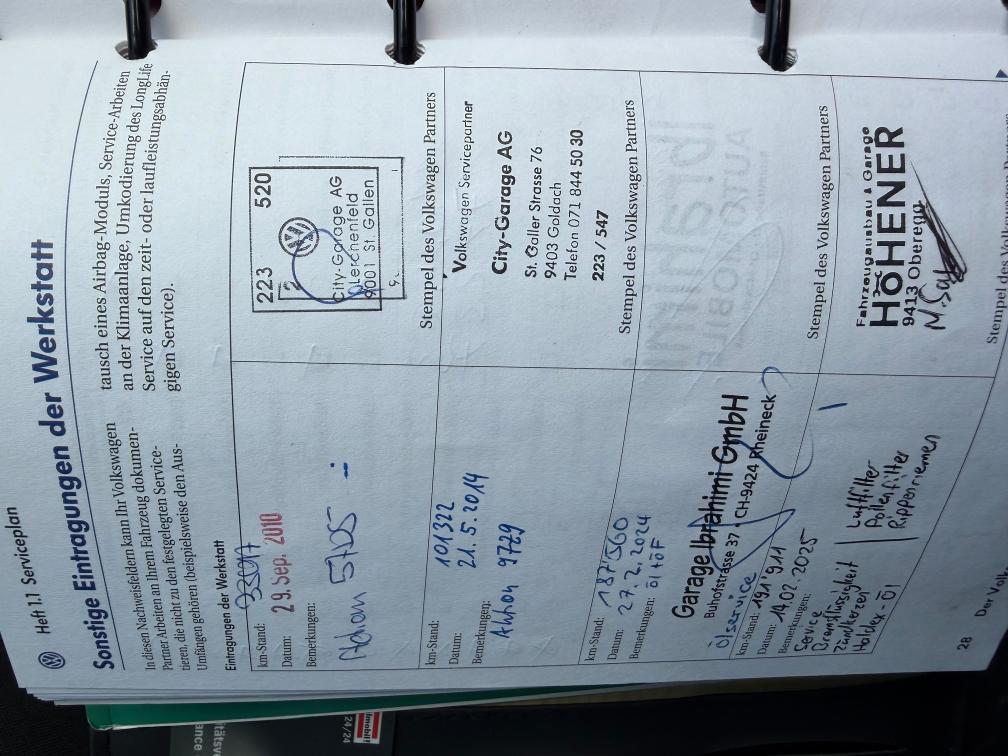 Heft 1.1 Serviceplan
Sonstige Eintragungen der Werkstatt
In diesen Nachweisfeldern kann Ihr Volkswagen
Partner Arbeiten an Ihrem Fahrzeug dokumen-
tieren, die nicht zu den festgelegten Service-
Umfängen gehören (beispielsweise den Aus-
tausch eines Airbag-Moduls, Service-Arbeiten
an der Klimaanlage, Umkodierung des LongLife
Service auf den zeit- oder laufleistungsabhän-
gigen Service).
Eintragungen der Werkstatt
km-Stand:
Datum: 29. Sep. 2010
Bemerkungen:
223 520
City-Garage AG
Lerchenfeld
9001 St. Gallen
Stempel des Volkswagen Partners
km-Stand: 101'322
Datum: 21.5.2014
Bemerkungen: Aktion 97Z9
Volkswagen Servicepartner
City-Garage AG
St. Galler Strasse 76
9403 Goldach
Telefon 071 844 50 30
223 / 547
Stempel des Volkswagen Partners
km-Stand: 187'560
Datum: 27.2.2024
Bemerkungen: Öl+ÖF
Garage Ibrahimi GmbH
Buhofstrasse 37 · CH-9424 Rheineck
Ölservice
Stempel des Volkswagen Partners
km-Stand: 191'911
Datum: 14.02.2025
Bemerkungen:
Service
Bremsflüssigkeit
Zündkerzen
Haldex-Öl
Luftfilter
Pollenfilter
Rippenriemen
Fahrzeugausbau & Garage
HÖHENER
9413 Oberegg
Stempel des
28